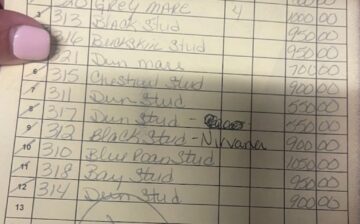 20 Grey Mare 4 1000 00
3 313 Black Stud 950 00
316 Buckskin Stud 950 00
321 Dun mare 700 00
6 315 Chestnut Stud 900 00
7 311 Dun Stud 550 00
8 317 Dun Stud - 550 00
9 312 Black Stud - Nirvana 900 00
10 310 Blue Roan Stud 1050 00
11 318 Bay Stud 950 00
12 314 Dun Stud 900 00
13